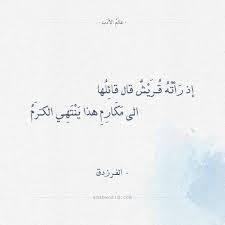 عالم الأدب
إذ رَأتْهُ قُرَيْشٌ قال قائِلُها
الى مَكَارِمِ هذا يَنْتَهِي الكَرَمُ
- الفرزدق .